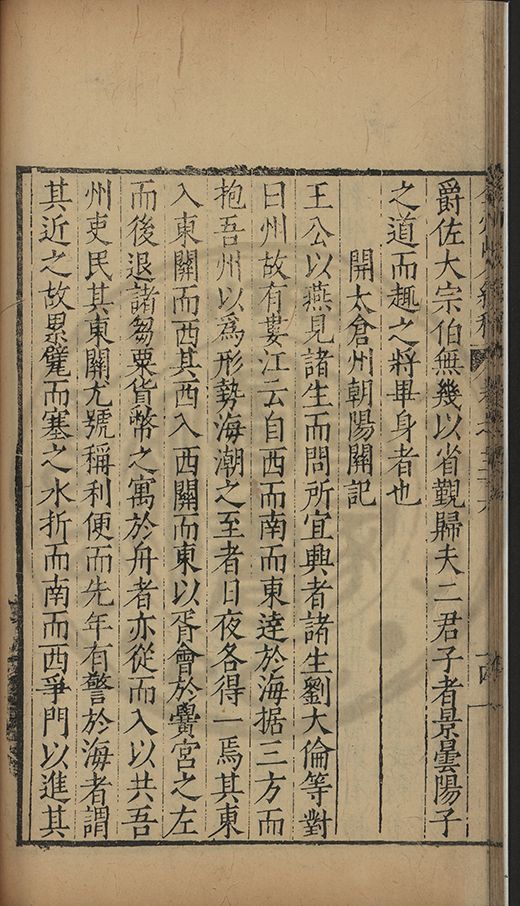 爵佐大宗伯無幾以省覲歸夫二君子者景曇陽子
之道而趣之將畢身者也
開太倉州朝陽關記
王公以燕見諸生而問所宜興者諸生劉大倫等對
曰州故有婁江云自西而南而東達於海据三方而
抱吾州以爲形勢海潮之至者日夜各得一焉其東
入東關而西其西入西關而東以胥會於黌宮之左
而後退諸芻粟貨幣之寓於舟者亦從而入以共吾
州吏民其東關尤號稱利便而先年有警於海者謂
其近之故累甓而塞之水折而南而西爭門以進其